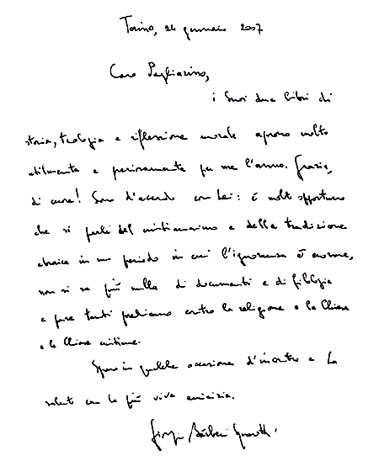 Torino, 26 gennaio 2007
Caro Pagliarino,
i Suoi due libri di
storia, teologia e riflessione morale aprono molto
utilmente e pensosamente per me l'anno. Grazie,
di cuore! Sono d'accordo con Lei: è molto opportuno
che si parli del cristianesimo e della tradizione
ebraica in un periodo in cui l'ignoranza è enorme,
non si sa più nulla di documenti e di filologia
e pure tanti parlano contro la religione e la Chiesa
e le Chiese cristiane.
Spero in qualche occasione d'incontro e La
saluto con la più viva amicizia.
Giorgio Bárberi Squarotti